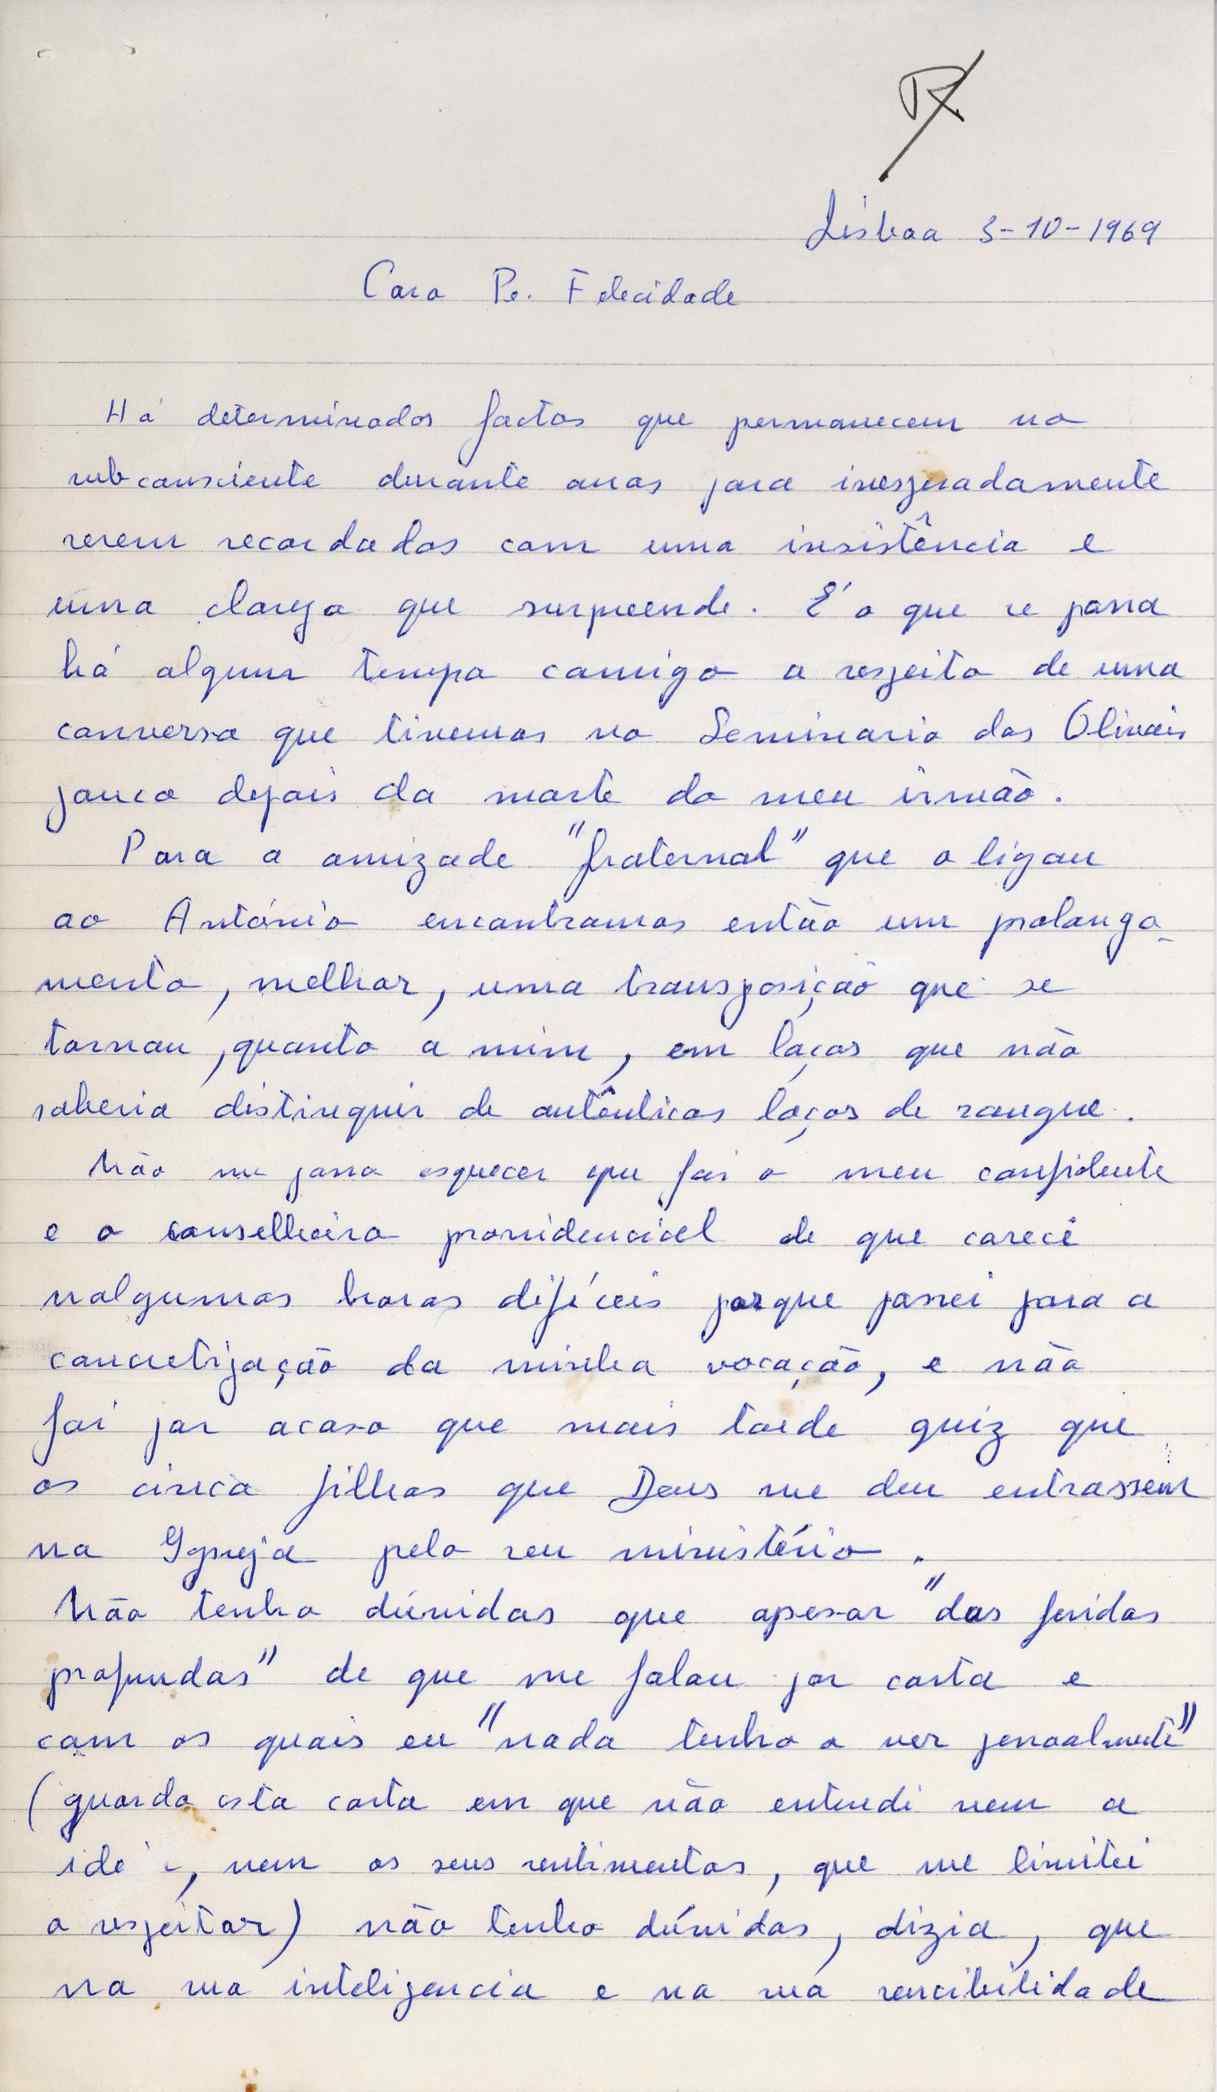 Lisboa 3-10-1969
Caro Pe. Felicidade
Há determinados factos que permanecem no
subconsciente durante anos para inesperadamente
serem recordados com uma insistência e
uma clareza que surpreende. É o que se passa
há algum tempo comigo a respeito de uma
conversa que tivemos no Seminario dos Olivais
pouco depois da morte do meu irmão.
Para a amizade "fraternal" que o ligou
ao António encontramos então um prolonga-
mento, melhor, uma transposição que se
tornou, quanto a mim, em laços que não
saberia distinguir de autênticos laços de sangue.
Não me posso esquecer que foi o meu confidente
e o conselheiro providencial de que careci
nalgumas horas difíceis porque passei para a
concretização da minha vocação, e não
foi por acaso que mais tarde quiz que
os cinco filhos que Deus me deu entrassem
na Igreja pelo seu ministério.
Não tenho dúvidas que apesar "das feridas
profundas" de que me falou por carta e
com os quais eu "nada tenho a ver pessoalmente"
(guardo esta carta em que não entendi nem a
, nem os seus sentimentos, que me limitei
a respeitar) não tenho dúvidas, dizia, que
na sua inteligencia e na sua sencibilidade